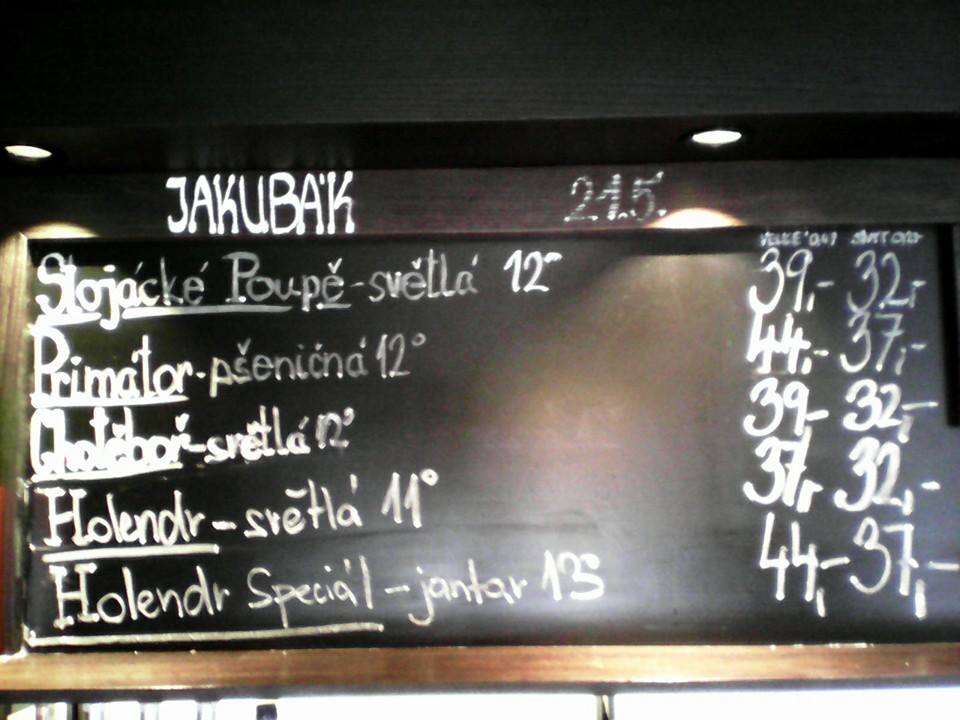 JAKUBÁK 21.5.
Stojácké Poupě - světlá 12° 39,- 32,-
Primátor - pšeničná 12° 44,- 37,-
Chotěboř - světlá 12° 39,- 32,-
Holendr - světlá 11° 37,- 32,-
Holendr Speciál - jantar 13° 44,- 37,-